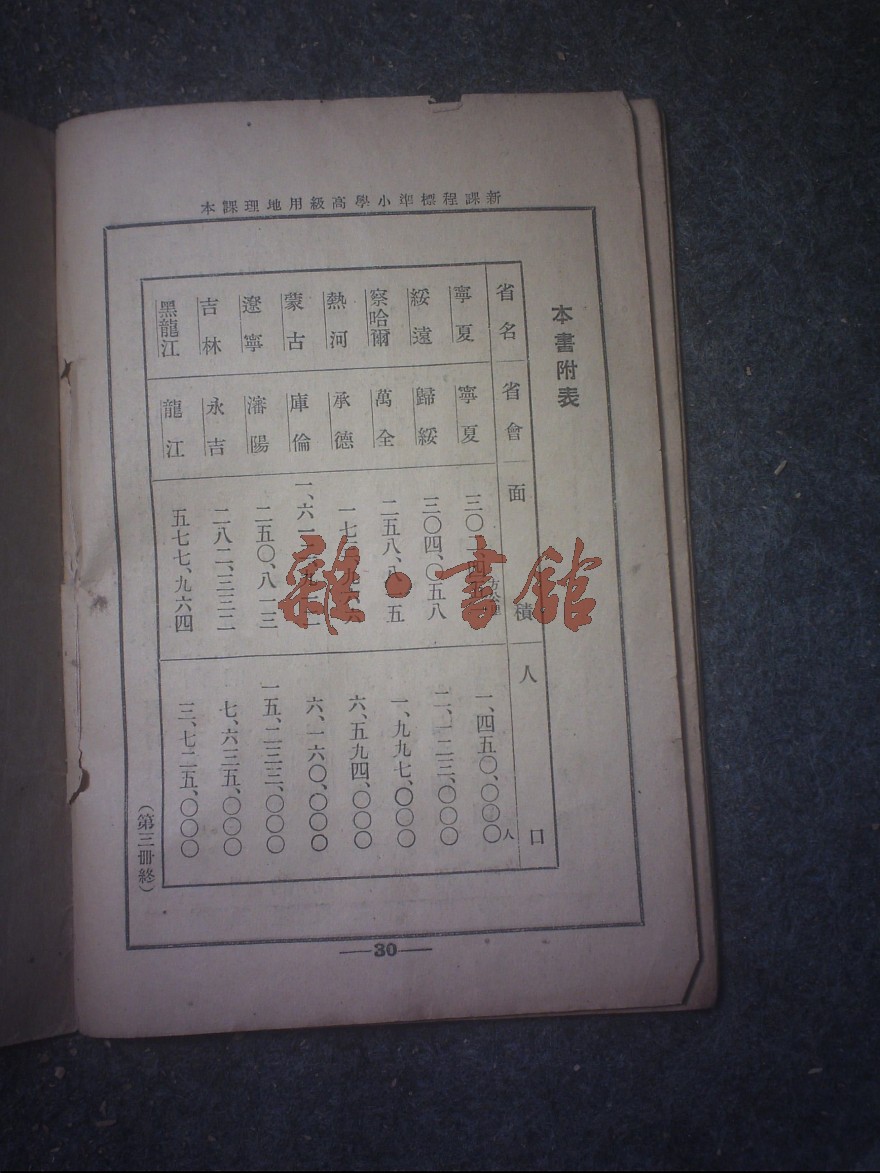 新課程標準小學高級用地理課本
本書附表
省名 省會 面積 方公里 人口 人
寧夏 寧夏 一、四五〇、〇〇〇
綏遠 歸綏 三〇四、〇五八 二、一二三、〇〇〇
察哈爾 萬全 一、九九七、〇〇〇
熱河 承德 六、五九四、〇〇〇
蒙古 庫倫 六、一六〇、〇〇〇
遼寧 瀋陽 二五〇、八一三 一五、二三三、〇〇〇
吉林 永吉 二八二、三三二 七、六三五、〇〇〇
黑龍江 龍江 五七七、九六四 三、七二五、〇〇〇
（第三冊終）
30
雜·書館